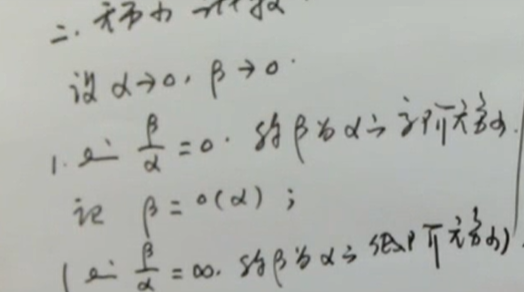 二. 无穷小
设 α→0, β→0.
1. lim β/α = 0. 称 β 为 α 之高阶无穷小.
记 β = o(α) ;
(lim β/α = ∞. 称 β 为 α 之低阶无穷小)